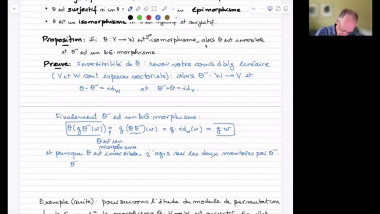 • θ est surjectif si im θ = épimorphisme
• θ est un isomorphisme si et surjectif.
Proposition: Si θ: V → W est isomorphisme, alors θ est inversible
et θ⁻¹ est un kG-morphisme
Preuve: Inversibilité de θ: revoir votre cours d'alg. linéaire
(V et W sont espaces vectoriels): alors θ⁻¹: W → V et
θ∘θ⁻¹ = id_W et θ⁻¹∘θ = id_V
Finalement θ⁻¹ est un kG-morphisme:
θ(g θ⁻¹(w)) = g (θθ⁻¹(w)) = g·id_W(w) = g·w
θ est un
morphisme
et puisque θ est inversible, g agit sur les deux membres par θ⁻¹
θ⁻¹
Exemple (suite): poursuivons l'étude du module de permutation
le morphisme θ: V → W est surjectif.